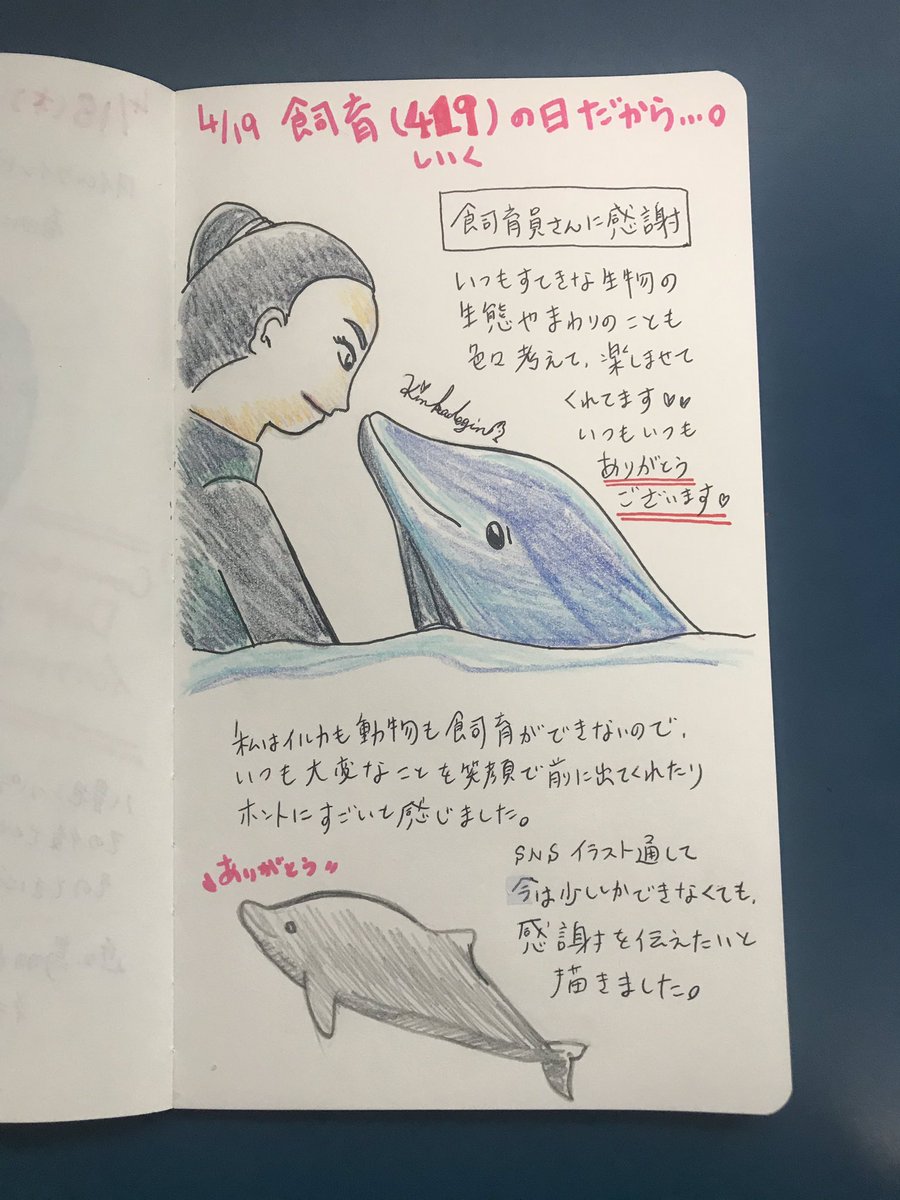 4/19 飼育(419)の日だから...。
しいく
飼育員さんに感謝
いつもすてきな生物の
生態やまわりのことも
色々考えて、楽しませて
くれてます♡♡
いつもいつも
ありがとう
ございます♡
Kinkadogin
私はイルカも動物も飼育ができないので、
いつも大変なことを笑顔で前に出てくれたり
ホントにすごいと感じました。
ありがとう
SNSイラスト通して
今は少ししかできなくても、
感謝を伝えたいと
描きました。